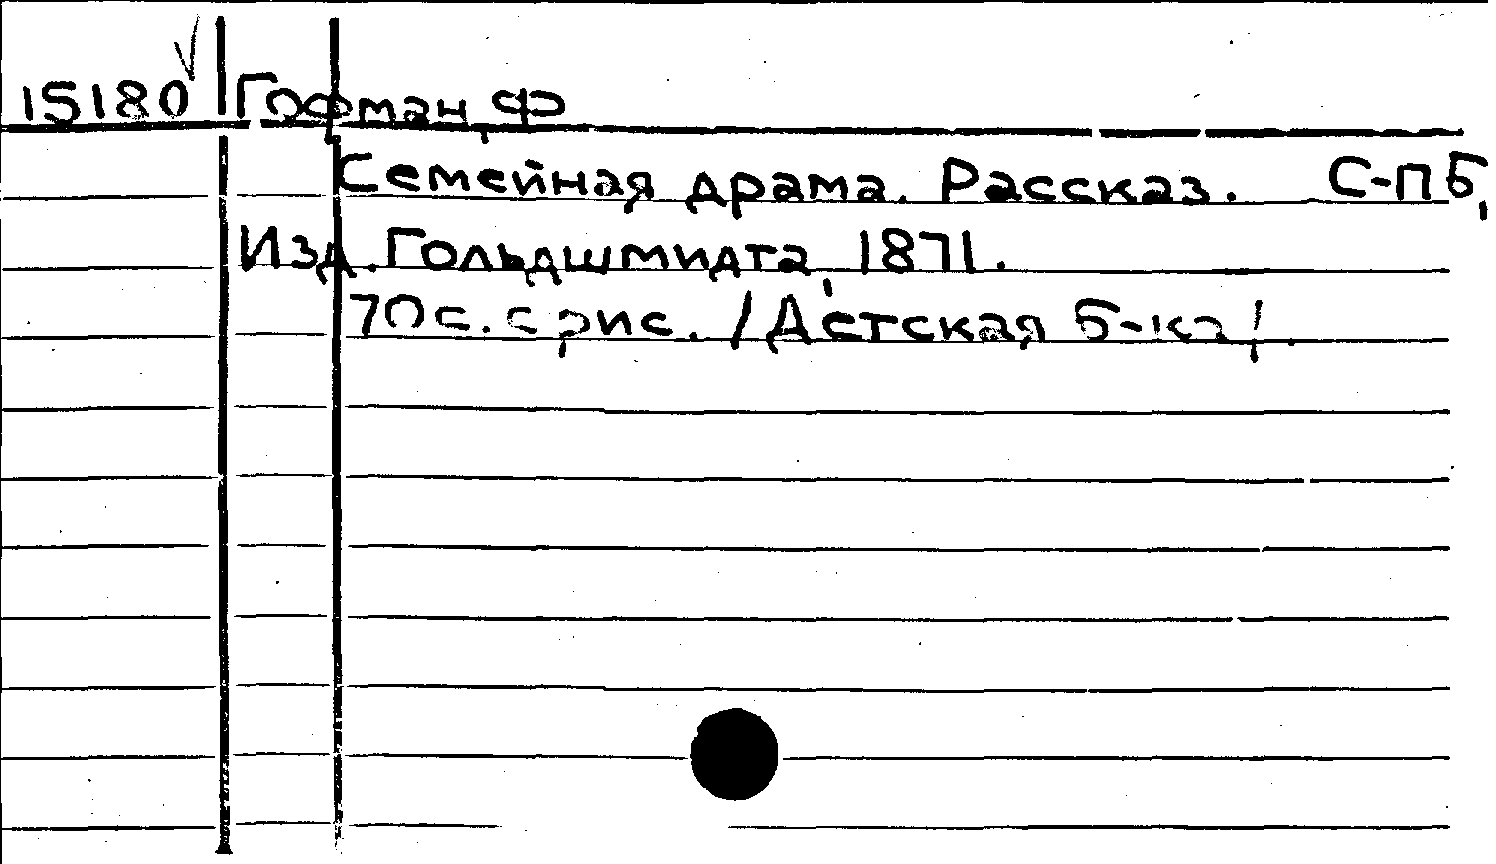 15180 Гофман, Ф
Семейная драма. Рассказ. С-ПБ,
Изд. Гольдшмидта, 1871.
70 с. с рис. /Детская б-ка/.